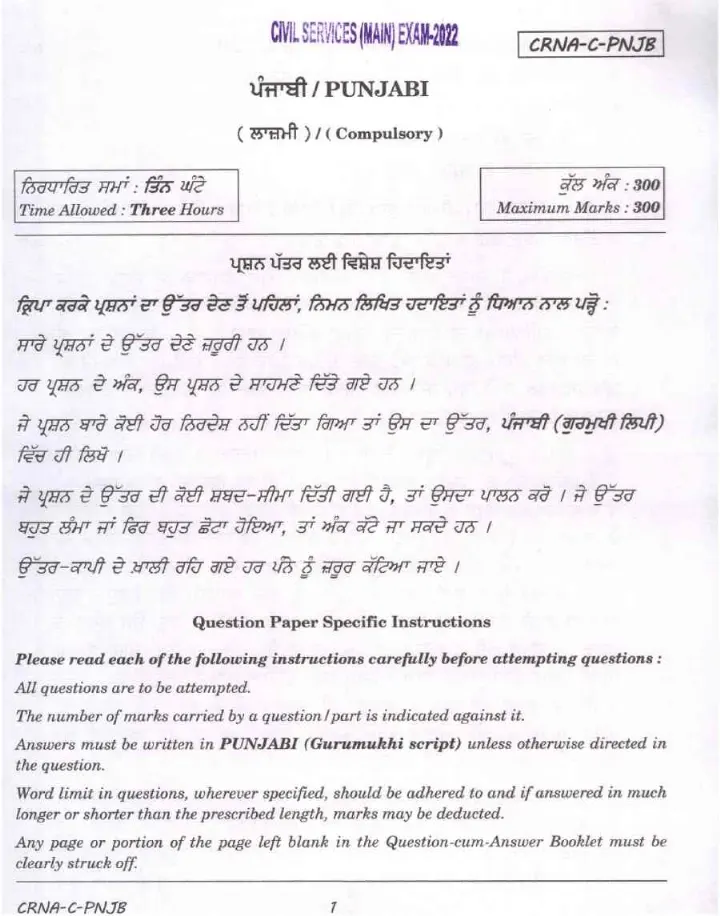 CIVIL SERVICES (MAIN) EXAM-2022
CRNA-C-PNJB
ਪੰਜਾਬੀ / PUNJABI
( ਲਾਜ਼ਮੀ ) / ( Compulsory )
ਨਿਰਧਾਰਿਤ ਸਮਾਂ : ਤਿੰਨ ਘੰਟੇ
Time Allowed : Three Hours
ਕੁੱਲ ਅੰਕ : 300
Maximum Marks : 300
ਪ੍ਰਸ਼ਨ ਪੱਤਰ ਲਈ ਵਿਸ਼ੇਸ਼ ਹਿਦਾਇਤਾਂ
ਕ੍ਰਿਪਾ ਕਰਕੇ ਪ੍ਰਸ਼ਨਾਂ ਦਾ ਉੱਤਰ ਦੇਣ ਤੋਂ ਪਹਿਲਾਂ, ਨਿਮਨ ਲਿਖਿਤ ਹਦਾਇਤਾਂ ਨੂੰ ਧਿਆਨ ਨਾਲ ਪੜ੍ਹੋ :
ਸਾਰੇ ਪ੍ਰਸ਼ਨਾਂ ਦੇ ਉੱਤਰ ਦੇਣੇ ਜ਼ਰੂਰੀ ਹਨ ।
ਹਰ ਪ੍ਰਸ਼ਨ ਦੇ ਅੰਕ, ਉਸ ਪ੍ਰਸ਼ਨ ਦੇ ਸਾਹਮਣੇ ਦਿੱਤੇ ਗਏ ਹਨ ।
ਜੇ ਪ੍ਰਸ਼ਨ ਬਾਰੇ ਕੋਈ ਹੋਰ ਨਿਰਦੇਸ਼ ਨਹੀਂ ਦਿੱਤਾ ਗਿਆ ਤਾਂ ਉਸ ਦਾ ਉੱਤਰ, ਪੰਜਾਬੀ (ਗੁਰਮੁਖੀ ਲਿਪੀ)
ਵਿੱਚ ਹੀ ਲਿਖੋ ।
ਜੇ ਪ੍ਰਸ਼ਨ ਦੇ ਉੱਤਰ ਦੀ ਕੋਈ ਸ਼ਬਦ-ਸੀਮਾ ਦਿੱਤੀ ਗਈ ਹੈ, ਤਾਂ ਉਸਦਾ ਪਾਲਨ ਕਰੋ । ਜੇ ਉੱਤਰ
ਬਹੁਤ ਲੰਮਾ ਜਾਂ ਫਿਰ ਬਹੁਤ ਛੋਟਾ ਹੋਇਆ, ਤਾਂ ਅੰਕ ਕੱਟੇ ਜਾ ਸਕਦੇ ਹਨ ।
ਉੱਤਰ-ਕਾਪੀ ਦੇ ਖ਼ਾਲੀ ਰਹਿ ਗਏ ਹਰ ਪੰਨੇ ਨੂੰ ਜ਼ਰੂਰ ਕੱਟਿਆ ਜਾਏ ।
Question Paper Specific Instructions
Please read each of the following instructions carefully before attempting questions :
All questions are to be attempted.
The number of marks carried by a question/part is indicated against it.
Answers must be written in PUNJABI (Gurumukhi script) unless otherwise directed in
the question.
Word limit in questions, wherever specified, should be adhered to and if answered in much
longer or shorter than the prescribed length, marks may be deducted.
Any page or portion of the page left blank in the Question-cum-Answer Booklet must be
clearly struck off.
CRNA-C-PNJB 1